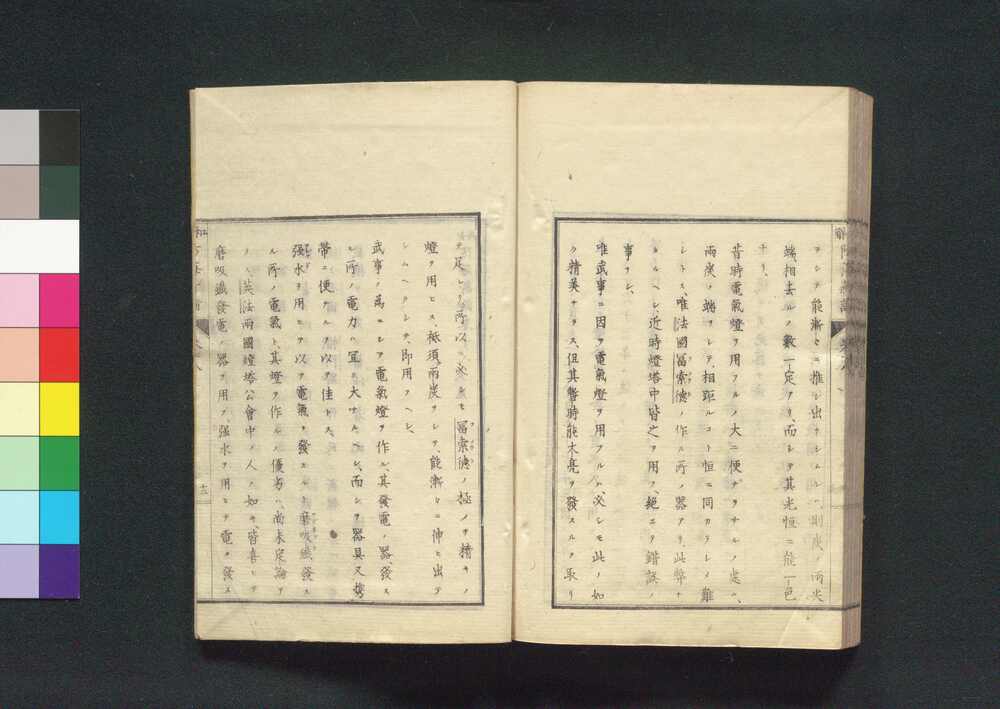 ヲシテ能漸々ニ推シ出サシムレハ、則炭ノ兩尖
端相去ルノ數一定アリ、而シテ其光恒ニ能一色
ナリ、
昔時電氣燈ヲ用フルノ大ニ便ナラサルノ處ハ、
兩炭ノ端ヲシテ、相距ルコト恒ニ同カラシメ難
シトス、唯法國冨索德ノ作ル所ノ器アリ、此弊ナ
カルヘシ、近時燈塔中皆之ヲ用フ、絕ニテ錯誤ノ
事ナシ、
唯武事ニ因テ電氣燈ヲ用フルハ、必シモ此ノ如
ク精美ナラス、但其暫時能木亮ヲ發スルヲ取リ
テ足レリ、所以ニ必シモ冨索德ノ極メテ精キノ
燈ヲ用ヒス、祗須兩炭ヲシテ、能漸々ニ伸ヒ出テ
シムヘクシテ、即用フヘシ、
武事ノ爲ニシテ電氣燈ヲ作ル、其發電ノ器、發ス
ル所ノ電力ハ宜ク大ナルヘシ、而シテ器具又攜
帶ニ便ナルヲ以テ佳トス、
强水ヲ用ヒテ以テ電氣ヲ發スルト、磨吸鐵、發ス
ル所ノ電氣ト、其燈ヲ作ルノ優劣ハ、尚未定論ア
ラス、英法兩國燈塔公會中ノ人ノ如キ、皆喜ヒテ
磨吸鐵發電ノ器ヲ用フ、强水ヲ用ヒテ電ヲ發ス